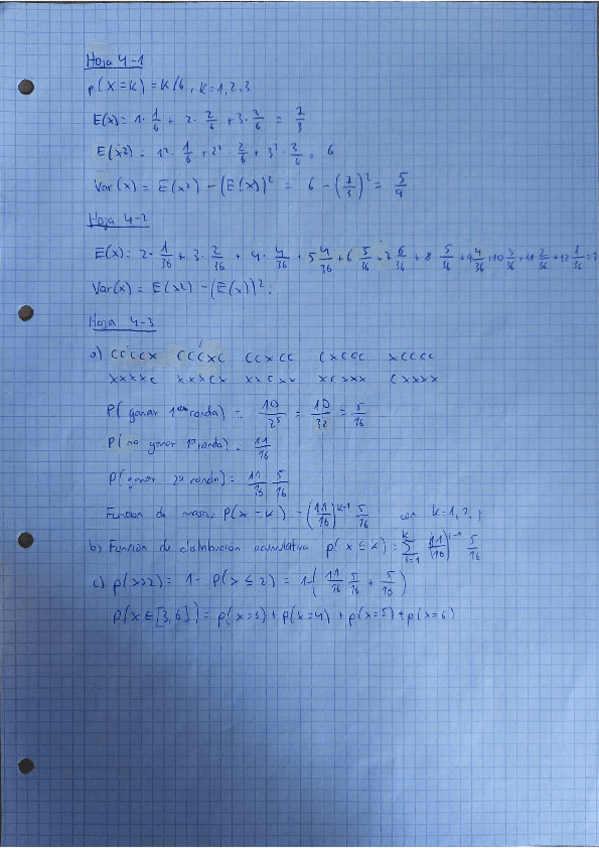 Hoja 4-1
p(X=K) = K/6, K=1,2,3
E(x) = 1·1/6 + 2·2/6 + 3·3/6 = 7/3
E(x2) = 1²·1/6 + 2²·2/6 + 3²·3/6 = 6
Var(x) = E(x2) - (E(x))² = 6 - (7/3)² = 5/9
Hoja 4-2
E(x) = 2·1/36 + 3·2/36 + 4·4/36 + 5 4/36 + 6 5/36 + 7 6/36 + 8 5/36 + 9 4/36 + 10 3/36 + 11 2/36 + 12 1/36 = 7
Var(x) = E(x2) - (E(x))²
Hoja 4-3
a) CCCCX CCCXC CCXCC CXCCC XCCCC
XXXXC XXXCX XXCXX XCXXX CXXXX
P(ganar 1era ronda) = 10/2⁵ = 10/32 = 5/16
P(no ganar 1ª ronda) = 11/16
P(ganar 2a ronda) = 11/16 5/16
Función de masa: P(x=k) = (11/16)^k-1 5/16 con k=1,2,3
b) Función de distribución acumulativa p(x≤k) = Σ i=1 k (11/16)^i-1 5/16
c) p(x>2) = 1 - P(x≤2) = 1-(11/16 5/16 + 5/16)
P(x∈[3,6]) = p(x=3) + p(x=4) + p(x=5) + p(x=6)